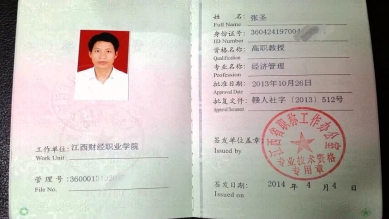 工作单位:江西财经职业学院
Work Unit
管理号:3600013
File No.
姓名 张圣
Full Name
身份证号 360424197004
ID Number
资格名称:高职教授
Qualification
专业名称:经济管理
Profession
批准日期:2013年10月26日
Approval Date
批复文号:赣人社字〔2013〕512号
Approval Document
签发单位盖章:
Issued by
江西省职称工作办公室
专业技术资格
专用章
签发日期:2014年4月4日
Issued on